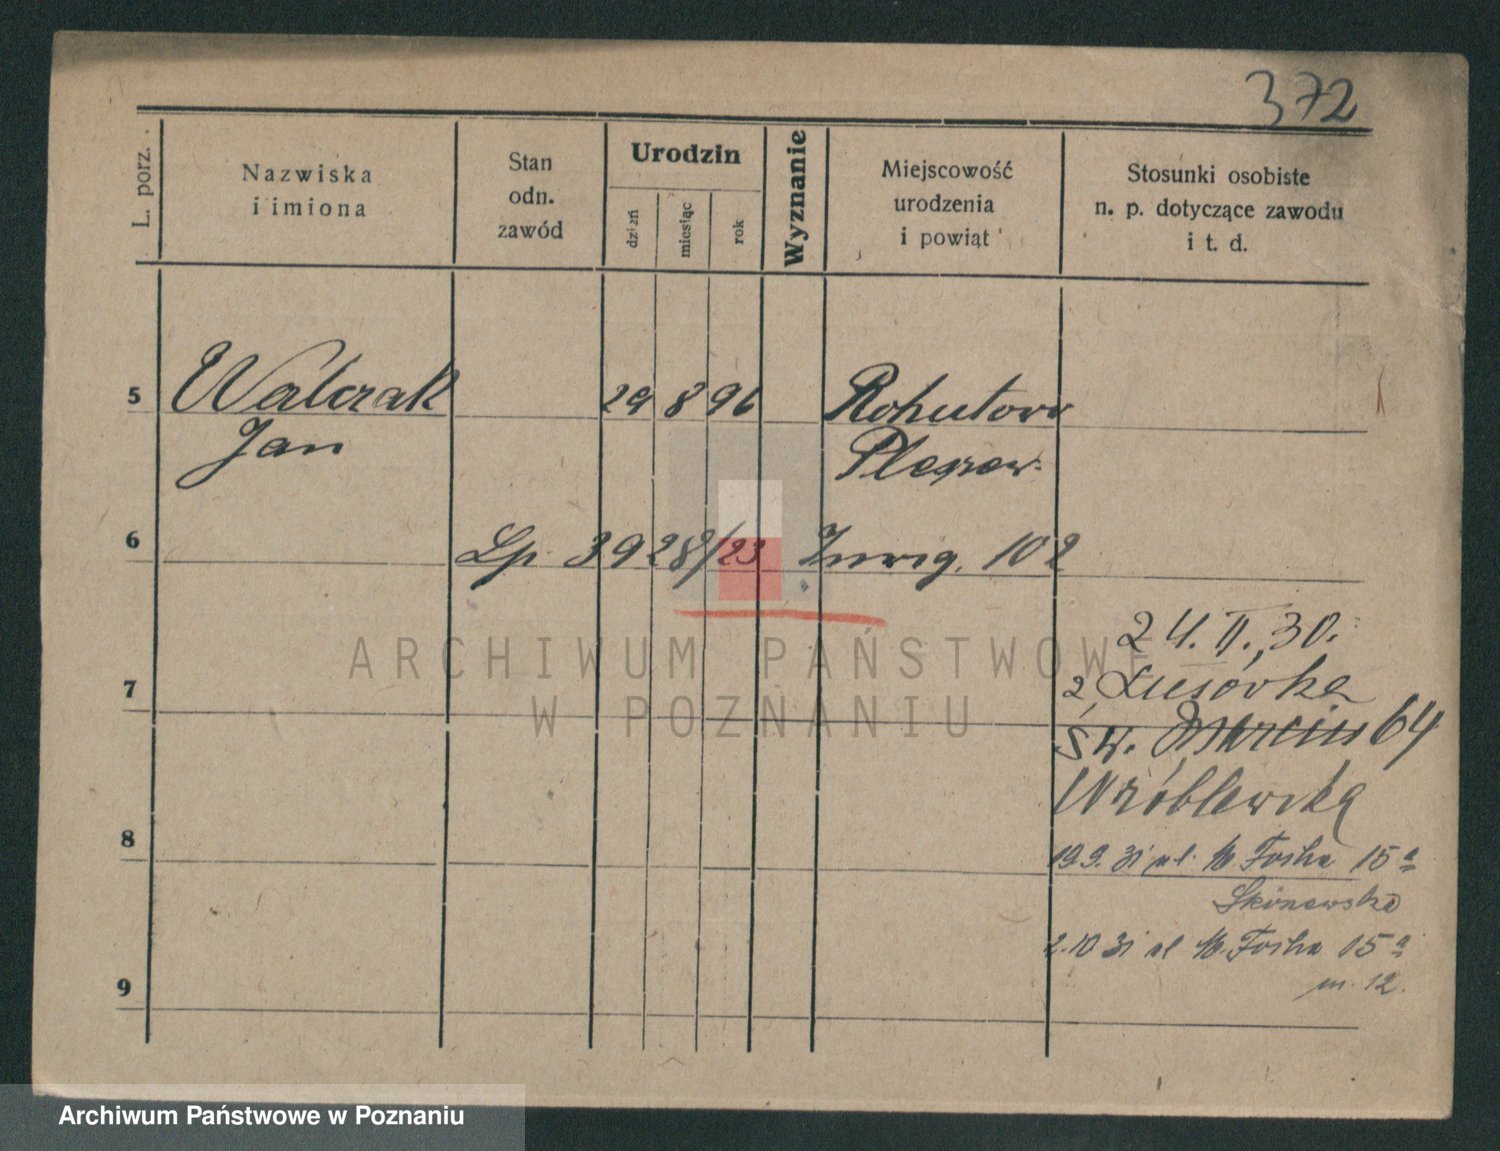 372
L. porz.
Nazwiska
i imiona
Stan
odn.
zawód
Urodzin
dzień
miesiąc
rok
Wyznanie
Miejscowość
urodzenia
i powiat
Stosunki osobiste
n. p. dotyczące zawodu
i t. d.
5
Walczak 29 8 96
Jan
6
Lp. 3928/23 102
7
24.II.30.
Św. Marcin 64
Wróblewska
8
19.9.31 ul. M. Focha 15a
9
2.10 31 ul M. Focha 15a
m. 12.
ARCHIWUM PAŃSTWOWE
W POZNANIU
Archiwum Państwowe w Poznaniu